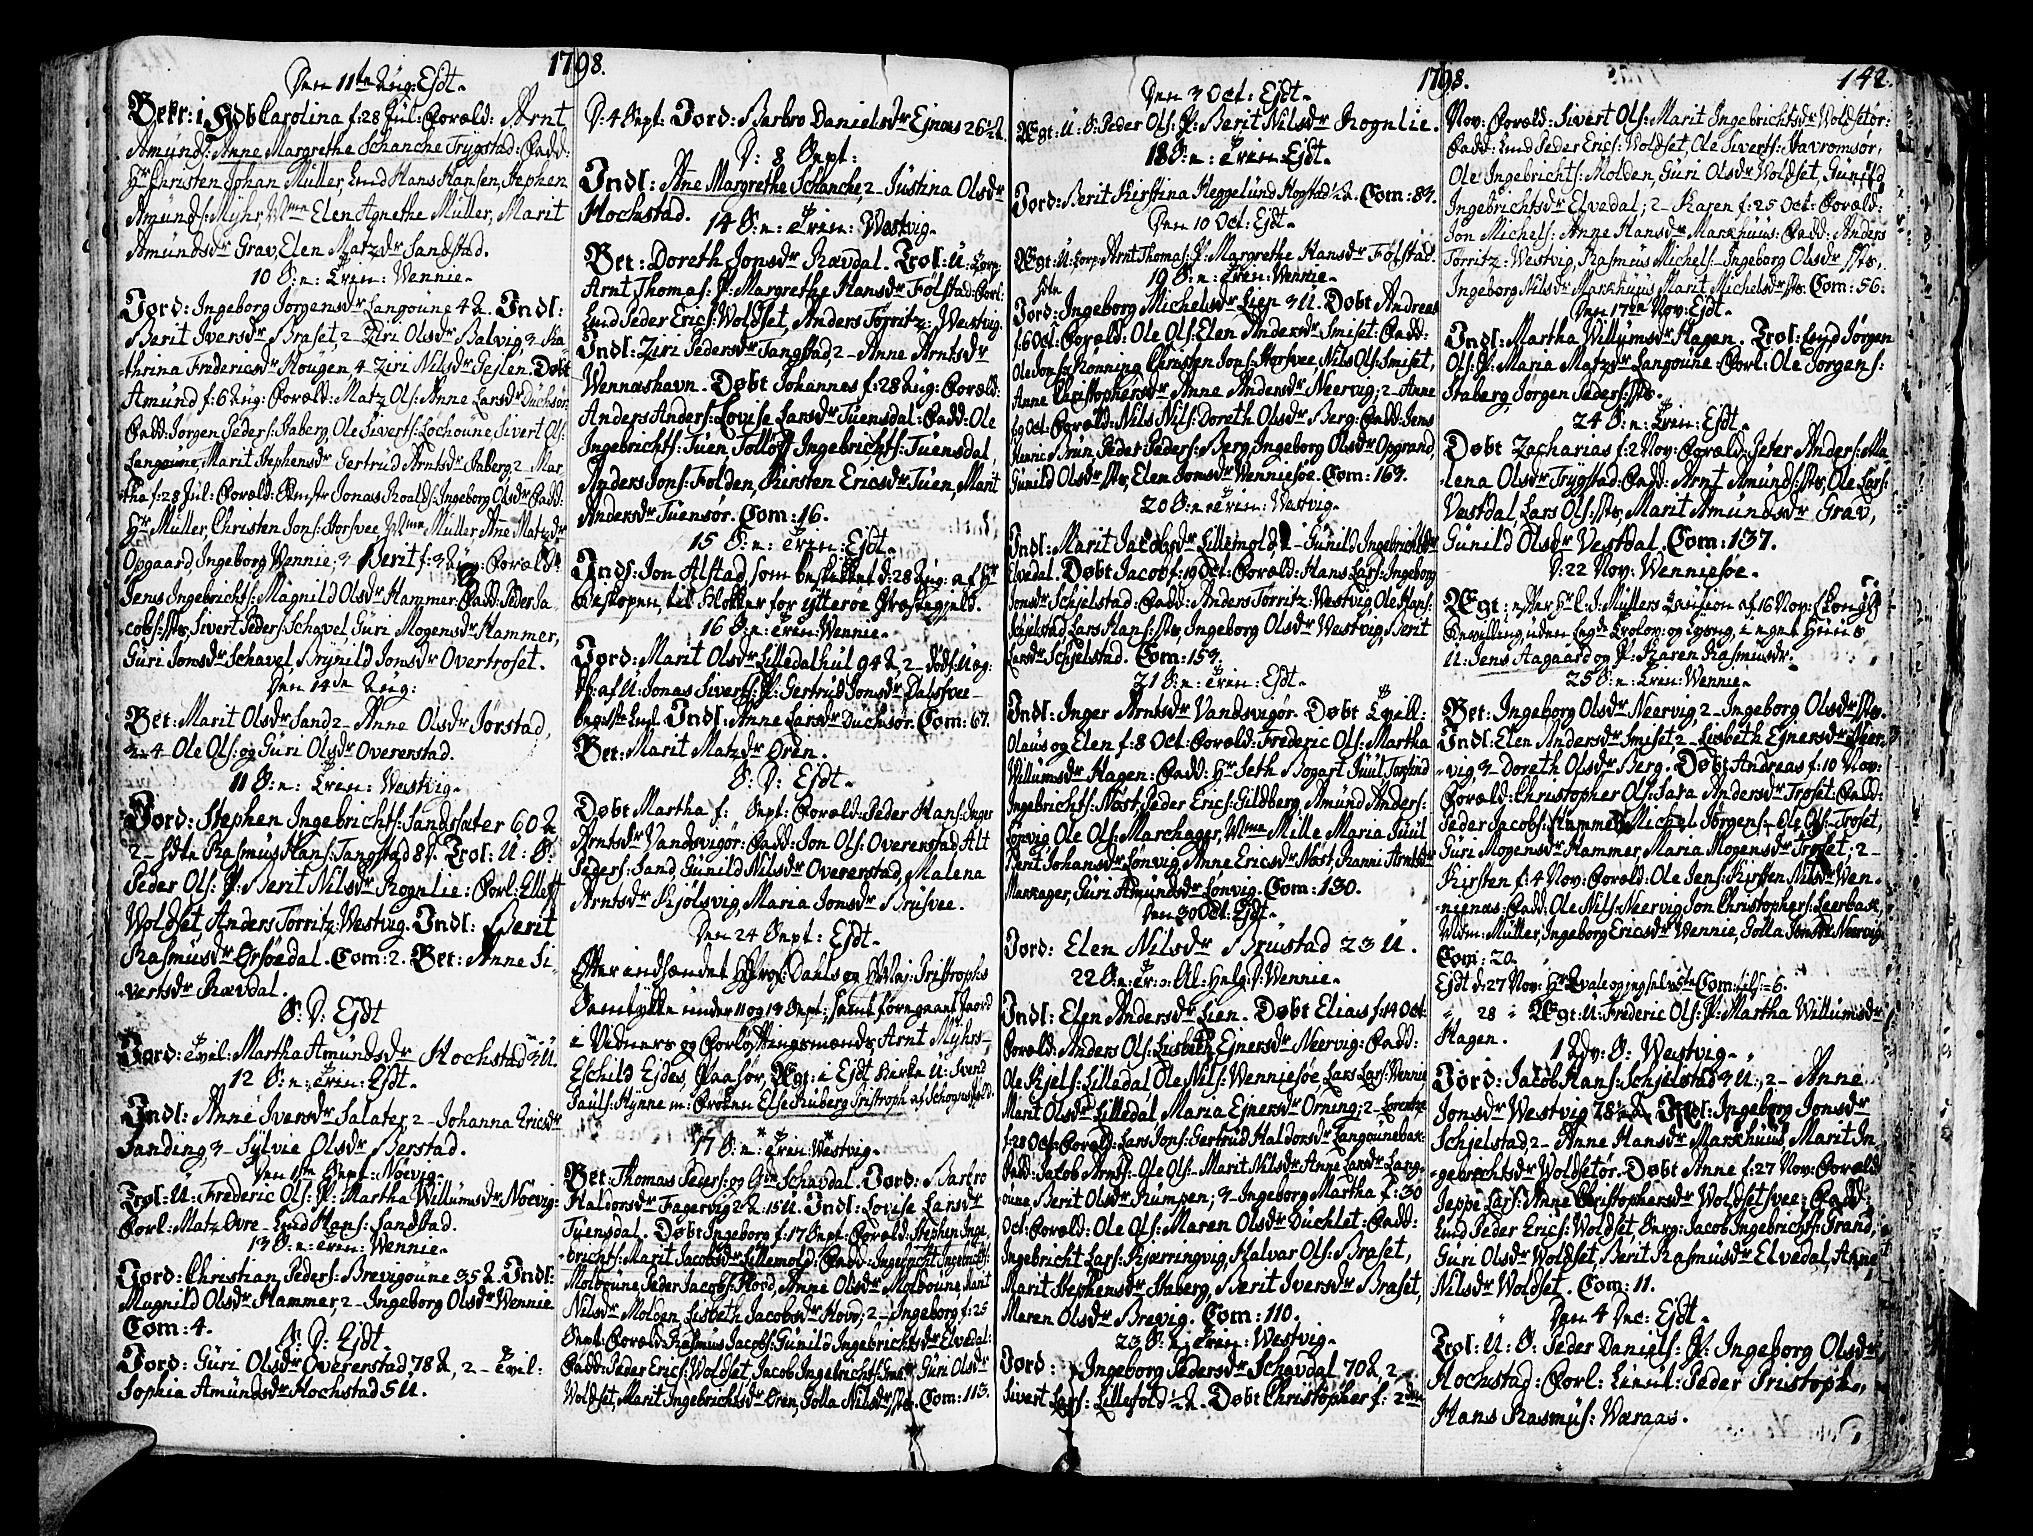 1798.
Den 11te Aug: Ejdt.
Bekr: i Hdb Carolina f: 28 Jul: Foræld: Arnt
Amunds: Anne Margrethe Schanche Trygstad: Fadd:
Hr Christen Johan Müller, Lnd Hans Hansen, Stephen
Amunds: Myhr, Mme Elen Agnethe Müller, Marit
Amundsdr Grav, Elen Matzdr Sandstad.
10 S: n: Trin: Wennie.
Jord: Ingeborg Jörgensdr Langoüne 4 A. Indl:
Berit Iversdr Braset, 2 - Ziri Olsdr Balvig, 3 - Ka-
thrina Fredericsdr Hougen, 4 Ziri Nilsdr Gejlen. Døbt
Amund f: 6 Aug: Foræld: Matz Ols: Anne Larsdr Duchsør:
Fadd: Jørgen Peders: Staberg, Ole Siverts: Lochoüne Sivert Ols:
Langoüne, Marit Stephensdr Gertrud Arntsdr Inberg, 2 - Mar-
tha f: 28 Jul: Foræld: Jonas Roalds: Ingeborg Olsdr Fadd:
Hr Müller, Christen Jons: Horsvee, Mme Müller Ane Matzdr
Opgaard, Ingeborg Wennie; 3 - Berit f: 3 Aug: Foræld:
Jens Ingebrichts: Magnild Olsdr Hammer: Fadd: Peder Ja-
cobs: sts, Sivert Peders: Schavel, Guri Mogensdr Hammer,
Guri Jonsdr Schavel, Brynild Jonsdr Overtroset.
Den 14de Aug:
Bet: Marit Olsdr Sand 2 - Anne Olsdr Jørstad,
3 - 4 Ole Ols: og Guri Olsdr Overerstad.
11 S: n: Trin: Westvig.
Jord: Stephen Ingebrichts: Sandsæter 60 A
2 - Hdte Rasmus Hans: Tangstad 8 d. Trol: U: S:
Peder Ols: P: Berit Nilsdr Rognlie: Forl: Elleff
Woldset, Anders Torritz: Westvig. Indl: Berit
Rasmusdr Orsöedal. Com: 2. Bet: Anne Si-
vertsdr Rævdal.
S: D: Ejdt
Jord: Tvil: Martha Amundsdr Hochstad 3 U.
12 S: n: Trin: Ejdt.
Indl: Anne Iversdr Salater 2 - Johanna Ericsdr
Sanding 3 - Sylvie Olsdr Berstad.
Den 1ste Sept: Noevig.
Trol: U: Frederic Ols: P: Martha Willumsdr Noevig:
Forl: Matz Ovre - Lnd Hans: Sandstad.
13 S: n: Trin: Wennie.
Jord: Christian Peders: Brevigoüne 35 A. Indl:
Magnild Olsdr Hammer 2 - Ingeborg Olsdr Wennie
Com: 4.
S: D: Ejdt.
Jord: Guri Olsdr Overerstad 78 A, 2 - Tvil:
Sophia Amundsdr Hochstad 5 U.
D: 4 Sept: Jord: Barbro Danielsdr Ejnæs 26 ½ A.
D: 8 Sept:
Indl: Ane Margrethe Schanche, 2 - Justina Olsdr
Hochstad.
14 S: n: Trin: Westvig.
Bet: Doreth Jonsdr Rævdal. Trol: U: Corp:
Arnt Thomas: P: Margrethe Hansdr Følstad: Forl:
Lnd Peder Erics: Woldset, Anders Torritz: Westvig.
Indl: Ziri Pedersdr Tangstad, 2 - Anne Arntsdr
Wennæshavn. Døbt Johannes f: 28 Aug: Foræld:
Anders Anders: Lovise Larsdr Tuensdal: Fadd: Ole
Ingebrichts: Tuen Tolløff Ingebrichts: Tuensdal
Anders Jons: Folden, Kirsten Ericsdr Tuen, Marit
Andersdr Tuensør. Com: 16.
15 S: n: Trin: Ejdt.
Inds: Jon Alstad, som beskikket d: 28 Aug: af Hr
Beskopen, til Klokker for Ytterøe Præstegjeld.
16 S: n: Trin: Wennie.
Jord: Marit Olsdr Lilledalhul 94 A 2 - dødf: U: æg:
db: af U: Jonas Siverts: P: Gertrud Jonsdr Dalsvee
Indl: Anne Larsdr Duchsør. Com: 67.
Bet: Marit Matzdr Øren.
S: D: Ejdt.
Døbt Martha f: Sept: Foræld: Peder Hans: Inger
Arntsdr Vandsvigör: Fadd: Jon Ols: Overerstad Alt
Peders: Sand Gunild Nilsdr Overerstad, Malena
Arntsdr Kjølsvig, Maria Jonsdr Brusvee.
Den 24 Sept: Ejdt.
Efter indsændet Hr Pros: Dahls og Hr Maj: Tristrophs
Samtykke under 11 og 13 Sept: samt foregaaet Jaord
i Vidners og Forløftningsmænds, Arnt Myhrs -
Eschild Ejdes Paasør, Ægt: i Ejdt Kirke U: Svend
Pauls: Hynne m: Frøken Else Ruberg Tristroph af Schognsfjeld.
17 S: n: Trin: Westvig.
Bet: Thomas Peders: og Gdr Schavdal. Jord: Barbro
Haldorsdr Fagervig 2 A 15 U. Indl: Lovise Larsdr
Tuensdal. Døbt Ingeborg f: 17 Sept: Foræld: Stephen Inge-
brichts: Marit Jacobsdr Lillemold: Fadd: Ingebricht Ingebrichts:
Moldoüne Peder Jacobs: Hord, Anne Olsdr Moldoüne, Marit
Nilsdr Molden, Lisbeth Jacobsdr Hovd; 2 - Ingeborg f: 25
Sept: Foræld: Rasmus Jacobs: Gunild Ingebrichtsdr Elvedal:
Fadd: Peder Erics: Woldset, Jacob Ingebrichts: Guri Olsdr
Woldset, Marit Ingebrichtsdr Øren, Golla Nilsdr sts. Com: 113.
1798.
142.
Den 3 Oct: Ejdt.
Ægt: U: S: Peder Ols: P: Berit Nilsdr Rognlie.
18 S: n: Trin: Ejdt.
Jord: Berit Kirstina Heggelund Hogstad ½ A. Com: 83.
Den 10 Oct: Ejdt.
Ægt: U: Corp: Arnt Thomas: P: Margrethe Hansdr Følstad.
19 S: n: Trin: Wennie.
Jord: Hdte Ingeborg Michelsdr Lien 3 U. Døbt Andreas
f: 6 Oct: Foræld: Ole Ols: Elen Andersdr Imiset: Fadd:
Ole Jons: Rønning Christen Jons: Horsvee, Nils Ols: Imiset,
Anne Christophersdr Anne Andersdr Neervig; 2 - Anne
f: 9 Oct: Foræld: Nils Nils: Doreth Olsdr Berg: Fadd: Jens
Brun Peder Peders: Berg, Ingeborg Olsdr Opgrand,
Gunild Olsdr sts, Elen Jonsdr Wenniesøe. Com: 163.
20 S: n: Trin: Westvig.
Indl: Marit Jacobsdr Lillemold, 2 - Gunild Ingebrichtsdr
Elvedal. Døbt Jacob f: 19 Oct: Foræld: Hans Lars: Ingeborg
Jonsdr Schjelstad: Fadd: Anders Torritz: Westvig Ole Hans:
Schjelstad Lars Hans: sts, Ingeborg Olsdr Westvig, Berit
Larsdr Schjelstad. Com: 153.
21 S: n: Trin: Ejdt.
Indl: Inger Arntsdr Vandsvigør. Døbt Tvill:
Olaus og Elen f: 8 Oct: Foræld: Frederic Ols: Martha
Willumsdr Hagen: Fadd: Hr Seth Bogart Juul Torfind
Ingebrichts: Møst, Peder Erics: Gildberg, Amund Anders:
Lønvig Ole Ols: Marchager, Mme Mille Maria Juul
Berit Johansdr Lønvig, Anne Ericsdr Møst, Ranni Arntsdr
Markager, Guri Amundsdr Lønvig. Com: 130.
Den 30 Oct: Ejdt.
Jord: Elen Nilsdr Brustad 23 U.
22 S: n: Tr: o: Al: Helg: D: Wennie.
Indl: Elen Andersdr Lien. Døbt Elias f: 14 Oct:
Foræld: Anders Ols: Lisbeth Ejnersdr Neervig: Fadd:
Ole Kjels: Lilledal Ole Nils: Wenniesøe, Lars Lars: Wennie
Marit Olsdr Lilledal Maria Ejnersdr Orning; 2 - Lorentze
f: 28 Oct: Foræld: Lars Jons: Gertrud Haldorsdr Langoünebak:
Fadd: Jacob Arnts: Ole Ols: Marit Nilsdr Anne Larsdr Lang-
oüne, Berit Olsdr Rumpen; 3 - Ingeborg Martha f: 30
Oct: Foræld: Ole Ols: Maren Olsdr Duchlet: Fadd:
Ingebricht Lars: Kjærringvig, Halvar Ols: Braset,
Marit Stephensdr Staberg, Berit Iversdr Braset,
Maren Olsdr Brevig. Com: 110.
23 S: n: Trin: Westvig.
Jord: Ingeborg Pedersdr Schavdal 70 A, 2 -
Sivert Lars: Lillefold ½ A. Døbt Christopher f: 2den
Nov: Foræld: Sivert Ols: Marit Ingebrichtsdr Woldsetør:
Fadd: Lnd Peder Erics: Woldset, Ole Siverts: Havromsør,
Ole Ingebrichts: Molden, Guri Olsdr Woldset, Gunild
Ingebrichtsdr Elvedal; 2 - Karen f: 25 Oct: Foræld:
Jon Michels: Anne Hansdr Markhuus: Fadd: Anders
Torritz: Westvig, Rasmus Michels - Ingeborg Olsdr sts,
Ingeborg Nilsdr Markhuus Marit Michelsdr sts. Com: 56.
Den 17de Nov: Ejdt.
Indl: Martha Willumsdr Hagen. Trol: Lnd Jørgen
Ols: P: Maria Matzdr Langoüne: Forl: Ole Jørgens:
Staberg, Jørgen Peders: sts.
24 S: n: Trin: Ejdt.
Døbt Zacharias f: 2 Nov: Foræld: Peter Anders: Ma-
lena Olsdr Trygstad: Fadd: Arnt Amunds: sts, Ole Lars:
Vestdal, Lars Ols: sts, Marit Amundsdr Grav,
Gunild Olsdr Vestdal. Com: 137.
D: 22 Nov: Wenniesøe.
Ægt: efter Hr C. J. Müllers Caution af 16 Nov: kongl:
Bevilling, uden Trolov: og Lysng, i eget Huus
U: Jens Aagaard og P: Karen Rasmusdr.
25 S: n: Trin: Wennie.
Bet: Ingeborg Olsdr Neervig, 2 - Ingeborg Olsdr sts.
Indl: Elen Andersdr Imiset, 2 - Lisbeth Ejnersdr Neer-
vig 3 - Doreth Olsdr Berg. Døbt Andreas f: 10 Nov:
Foræld: Christopher Ols: Sara Andersdr Troset: Fadd:
Peder Jacobs: Hammer Michel Jørgens - Ole Ols - Troset,
Guri Mogensdr Hammer, Maria Mogensdr Troset; 2 -
Kirsten f: 4 Nov: Foræld: Ole Jens: Kirsten Nilsdr Wen-
neenæs: Fadd: Ole Nils: Neervig Jon Christophers: Leerbak,
Mdm: Müller, Ingeborg Ericsdr Wennie, Golla Jonsdr Neervig.
Com: 20.
Ejdt d: 27 Nov: Hr Kvale og jeg selv Com: tils: 6.
" 28 " Ægt: U: Frederic Ols: P: Martha Willumsdr
Hagen.
1 Adv: S: Westvig.
Jord: Jacob Hans: Schjelstad 3 U, 2 - Anne
Jonsdr Westvig 78 ½ A. Indl: Ingeborg Jonsdr
Schjelstad 2 - Anne Hansdr Markhuus, Marit In-
gebrechtsdr Woldsetør. Døbt Anne f: 27 Nov: Foræld
Jeppe Lars: Anne Christophersdr Woldsetsvee: Fadd:
Lnd Peder Erics: Woldset, Serg: Jacob Ingebrichts: Grand,
Guri Olsdr Woldset, Berit Rasmusdr Elvedal, Anne
Nilsdr Woldset. Com: 11.
Den 4 Dec: Ejdt.
Trol: U: S: Peder Daniels: P: Ingeborg Olsdr
Hochstad: Forl: Lieut: Peder Tristoph,
Hans Rasmus: Wæraas.